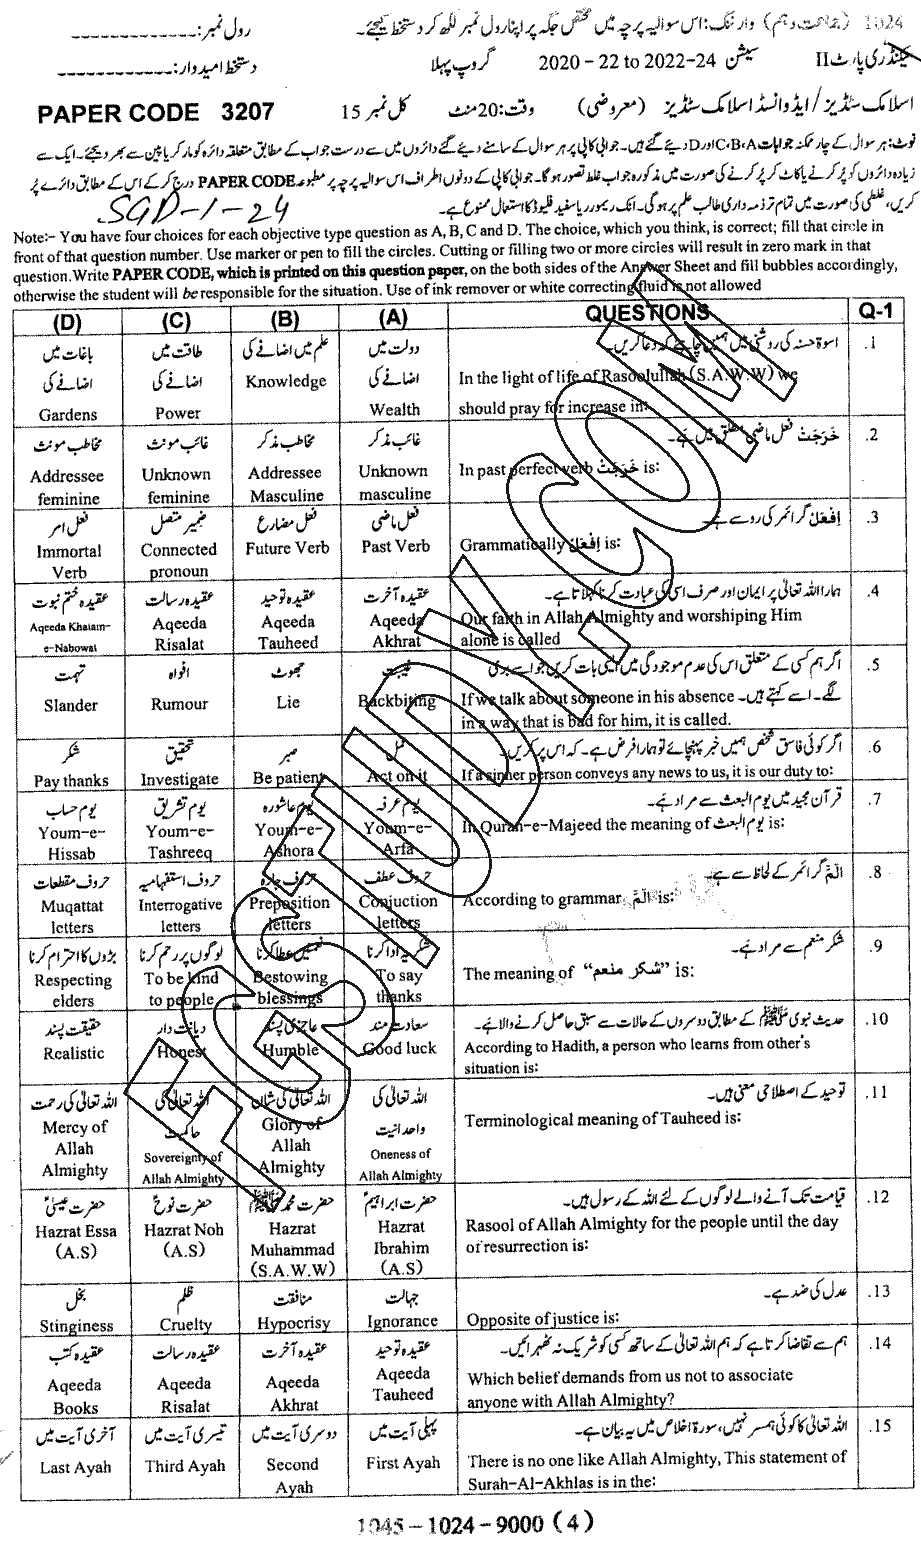 1024 (جماعت دہم) وارننگ: اس سوالیہ پرچہ میں مختص جگہ پر اپنا رول نمبر لکھ کر دستخط کیجئے۔ رول نمبر: -------------
سیکنڈری پارٹ II سیشن 2020 – 22 to 2022-24 گروپ پہلا دستخط امیدوار: ------------
اسلامک سٹڈیز / ایڈوانسڈ اسلامک سٹڈیز (معروضی) وقت: 20 منٹ کل نمبر 15 PAPER CODE 3207
نوٹ: ہر سوال کے چار ممکنہ جوابات C،B،A اور D دیئے گئے ہیں۔ جوابی کاپی پر ہر سوال کے سامنے دیئے گئے دائروں میں سے درست جواب کے مطابق متعلقہ دائرہ کو مارکر یا پین سے بھر دیجئے۔ ایک سے
زیادہ دائروں کو پُر کرنے یا کاٹ کر پُر کرنے کی صورت میں مذکورہ جواب غلط تصور ہوگا۔ جوابی کاپی کے دونوں اطراف اس سوالیہ پرچہ پر مطبوعہ PAPER CODE درج کر کے اس کے مطابق دائرے پُر
کریں، غلطی کی صورت میں تمام تر ذمہ داری طالب علم پر ہوگی۔ انک ریموور یا سفید فلیوڈ کا استعمال ممنوع ہے۔ SGD-1-24
Note:- You have four choices for each objective type question as A, B, C and D. The choice, which you think, is correct; fill that circle in
front of that question number. Use marker or pen to fill the circles. Cutting or filling two or more circles will result in zero mark in that
question. Write PAPER CODE, which is printed on this question paper, on the both sides of the Answer Sheet and fill bubbles accordingly,
otherwise the student will be responsible for the situation. Use of ink remover or white correcting fluid is not allowed
(D) (C) (B) (A) QUESTIONS Q-1
باغات میں طاقت میں علم میں اضافے کی دولت میں اسوۃ حسنہ کی روشنی میں ہمیں چاہیئے کہ دعا کریں۔ .1
اضافے کی اضافے کی Knowledge اضافے کی In the light of life of Rasoolullah (S.A.W.W) we
Gardens Power Wealth should pray for increase in:
مخاطب مونث غائب مونث مخاطب مذکر غائب مذکر خَرَجَتْ فعل ماضی مطلق میں ہے۔ .2
Addressee Unknown Addressee Unknown In past perfect verb خَرَجَتْ is:
feminine feminine Masculine masculine
فعل امر ضمیر متصل فعل مضارع فعل ماضی اِفْعَلْ گرائمر کی رو سے ہے۔ .3
Immortal Connected Future Verb Past Verb Grammatically اِفْعَلْ is:
Verb pronoun
عقیدہ ختم نبوت عقیدہ رسالت عقیدہ توحید عقیدہ آخرت ہمارا اللہ تعالیٰ پر ایمان اور صرف اسی کی عبادت کرنا کہلاتا ہے۔ .4
Aqeeda Khatam- Aqeeda Aqeeda Aqeeda Our faith in Allah Almighty and worshiping Him
e-Nabowat Risalat Tauheed Akhrat alone is called
تہمت افواہ جھوٹ غیبت اگر ہم کسی کے متعلق اس کی عدم موجودگی میں ایسی بات کریں جو اسے بری .5
Slander Rumour Lie Backbiting لگے۔ اسے کہتے ہیں۔ If we talk about someone in his absence
in a way that is bad for him, it is called.
شکر تحقیق صبر عمل اگر کوئی فاسق شخص ہمیں خبر پہنچائے تو ہمارا فرض ہے۔ کہ اس پر کریں۔ .6
Pay thanks Investigate Be patient Act on it If a sinner person conveys any news to us, it is our duty to:
یوم حساب یوم تشریق یوم عاشورہ یوم عرفہ قرآن مجید میں یوم البعث سے مراد ہے۔ .7
Youm-e- Youm-e- Youm-e- Youm-e- In Quran-e-Majeed the meaning of یوم البعث is:
Hissab Tashreeq Ashora Arfa
حروف مقطعات حروف استفہامیہ حروف جارہ حروف عطف الٓمّٓ گرائمر کے لحاظ سے ہے۔ .8
Muqattat Interrogative Preposition Conjuction According to grammar الٓمّٓ is:
letters letters letters letters
بڑوں کا احترام کرنا لوگوں پر رحم کرنا نعمتیں عطا کرنا شکریہ ادا کرنا شکر منعم سے مراد ہے۔ .9
Respecting To be kind Bestowing To say The meaning of "شکر منعم" is:
elders to people blessings thanks
حقیقت پسند دیانت دار عاجزی پسند سعادت مند حدیث نبوی ﷺ کے مطابق دوسروں کے حالات سے سبق حاصل کرنے والا ہے۔ .10
Realistic Honest Humble Good luck According to Hadith, a person who learns from other's
situation is:
اللہ تعالیٰ کی رحمت اللہ تعالیٰ کی اللہ تعالیٰ کی شان اللہ تعالیٰ کی توحید کے اصطلاحی معنی ہیں۔ .11
Mercy of حاکمیت Glory of واحدانیت Terminological meaning of Tauheed is:
Allah Sovereignty of Allah Oneness of
Almighty Allah Almighty Almighty Allah Almighty
حضرت عیسیٰؑ حضرت نوحؑ حضرت محمد ﷺ حضرت ابراہیمؑ قیامت تک آنے والے لوگوں کے لئے اللہ کے رسول ہیں۔ .12
Hazrat Essa Hazrat Noh Hazrat Hazrat Rasool of Allah Almighty for the people until the day
(A.S) (A.S) Muhammad Ibrahim of resurrection is:
(S.A.W.W) (A.S)
بخل ظلم منافقت جہالت عدل کی ضد ہے۔ .13
Stinginess Cruelty Hypocrisy Ignorance Opposite of justice is:
عقیدہ کتب عقیدہ رسالت عقیدہ آخرت عقیدہ توحید ہم سے تقاضا کرتا ہے کہ ہم اللہ تعالیٰ کے ساتھ کسی کو شریک نہ ٹھہرائیں۔ .14
Aqeeda Aqeeda Aqeeda Aqeeda Which belief demands from us not to associate
Books Risalat Akhrat Tauheed anyone with Allah Almighty?
آخری آیت میں تیسری آیت میں دوسری آیت میں پہلی آیت میں اللہ تعالیٰ کا کوئی ہمسر نہیں، سورۃ اخلاص میں یہ بیان ہے۔ .15
Last Ayah Third Ayah Second First Ayah There is no one like Allah Almighty, This statement of
Ayah Surah-Al-Akhlas is in the:
1045 – 1024 – 9000 (4)
FGSTUDY.COM